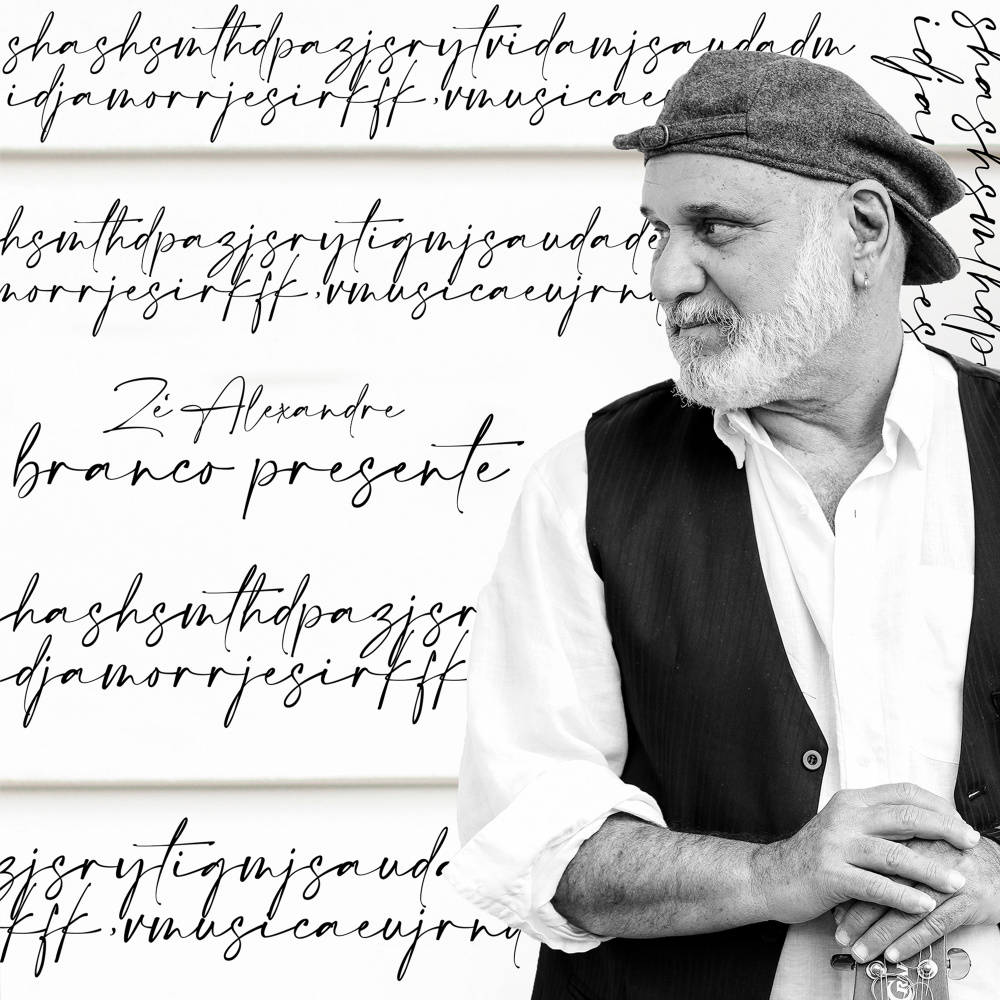 shashsmthdpazjsrytvidamjsaudadm
idjamorrjesirkfk,vmusicaeu
hsmthdpazjsrytigmjsaudade
morrjesirkfk,vmusicaeujrnu
Zé Alexandre
branco presente
hashsmthdpazjsr
djamorrjesirkfk
zjsrytigmjsauda
kfk,vmusicaeujrnu
shashsmthdp